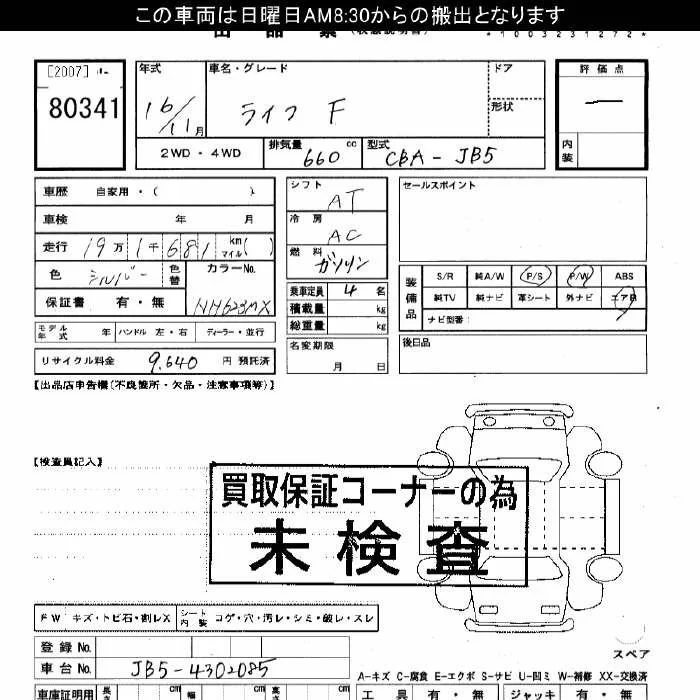 この車両は日曜日AM8:30からの搬出となります
出品票 (状態説明書) *1003231272*
[2007]
80341
年式 車名・グレード ドア 評価点
16/11月 ライフ F 形状 —
2WD・4WD 排気量 660 cc 型式 CBA-JB5 内装
車歴 自家用・( )
車検 年 月
走行 19万1千681 km マイル( )
色 シルバー 色替 カラーNo.
保証書 有・無 NH623MX
モデル年式 年 ハンドル 左・右 ディーラー・並行
リサイクル料金 9,640 円 預託済
シフト AT
冷房 AC
燃料 ガソリン
乗車定員 4 名
積載量 kg
総重量 kg
名変期限 月 日
セールスポイント
装備品 S/R 純A/W P/S P/W ABS
純TV 純ナビ 革シート 外ナビ エアB
ナビ型番:
後日品
【出品店申告欄(不良箇所・欠品・注意事項等)】
【検査員記入】
買取保証コーナーの為
未検査
FW キズ・トビ石・割レX シート内装 コゲ・穴・汚レ・シミ・破レ・スレ
登録No.
車台No. JB5-4302085
スペア
A-キズ C-腐食 E-エクボ S-サビ U-凹ミ W-補修 XX-交換済
車庫証明用 長さ cm 幅 cm 高さ cm 工具 有・無 ジャッキ 有・無